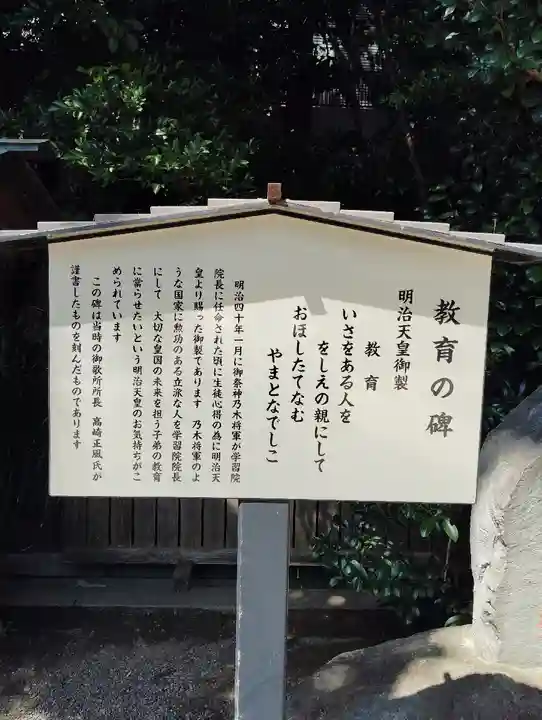 教育の碑
明治天皇御製
教育
いさをある人を
をしえの親にして
おほしたてなむ
やまとなでしこ
明治四十年一月に御祭神乃木将軍が学習院
院長に任命された頃に生徒心得の為に明治天
皇より賜った御製であります　乃木将軍のよ
うな国家に勲功のある立派な人を学習院院長
にして　大切な皇国の未来を担う子弟の教育
に當らせたいという明治天皇のお気持ちがこ
められています
この碑は当時の御歌所所長　高崎正風氏が
謹書したものを刻んだものであります